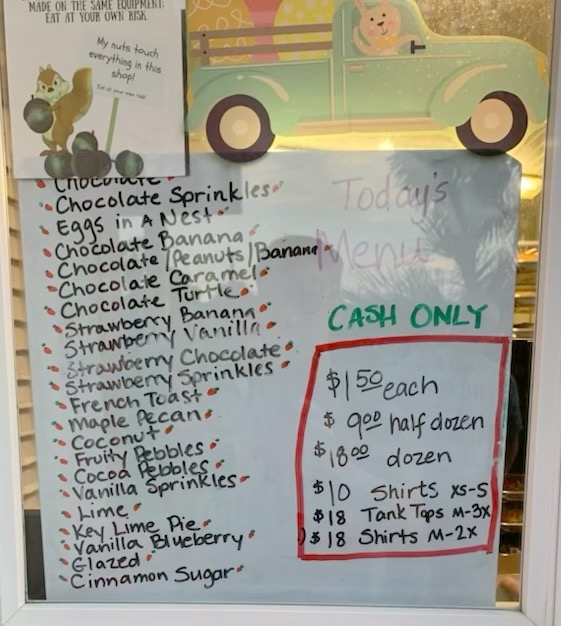 MADE ON THE SAME EQUIPMENT.
EAT AT YOUR OWN RISK
My nuts touch
everything in this
shop!
Eat at your own risk!
Chocolate
Chocolate Sprinkles
Eggs in A Nest
Chocolate Banana
Chocolate/Peanuts/Banana
Chocolate Caramel
Chocolate Turtle
Strawberry Banana
Strawberry Vanilla
Strawberry Chocolate
Strawberry Sprinkles
French Toast
Maple Pecan
Coconut
Fruity Pebbles
Cocoa Pebbles
Vanilla Sprinkles
Lime
Key Lime Pie
Vanilla Blueberry
Glazed
Cinnamon Sugar
Today's
Menu
CASH ONLY
$1.50 each
$9.00 half dozen
$18.00 dozen
$10 Shirts XS-S
$18 Tank Tops M-3X
$18 Shirts M-2X